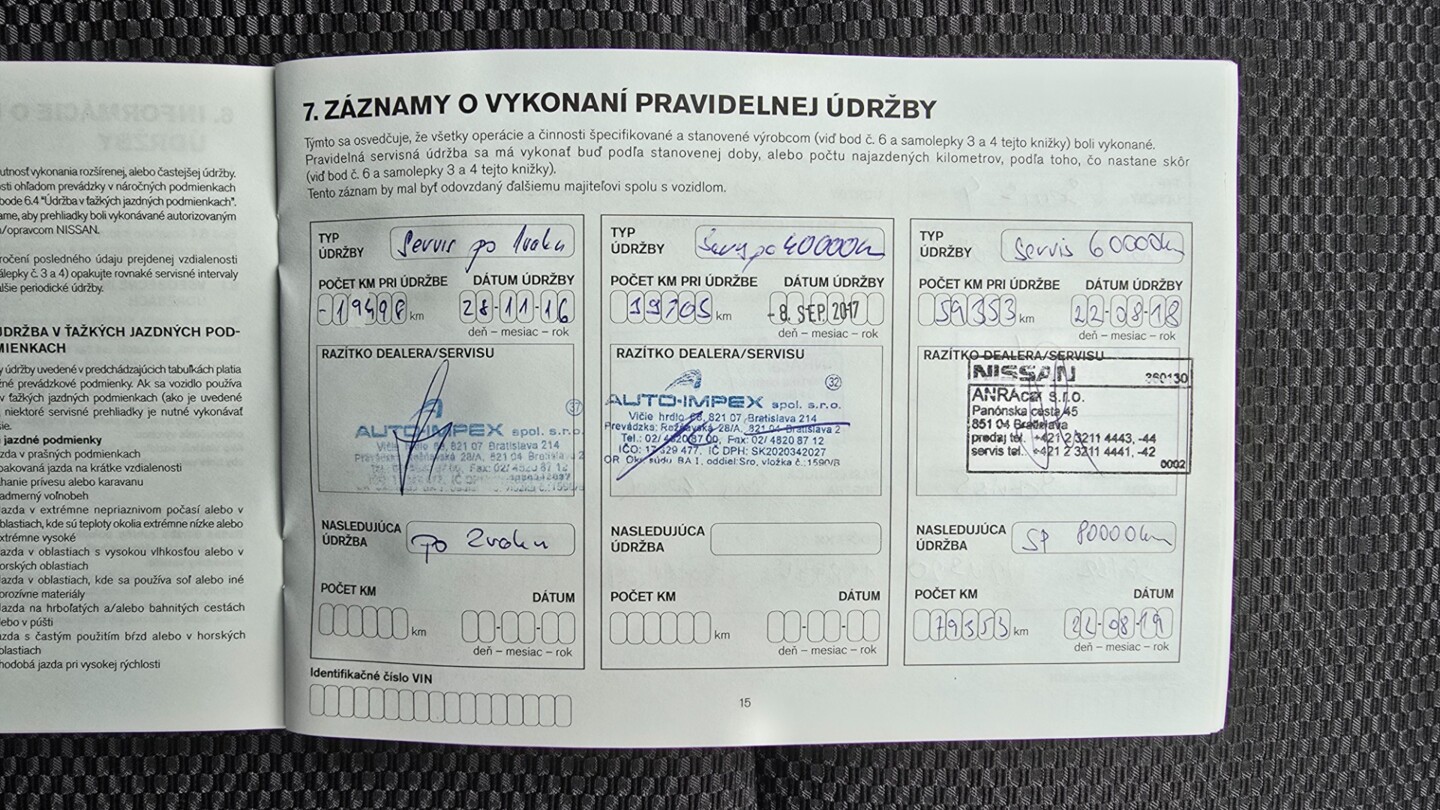 utnosť vykonania rozšírenej, alebo častejšej údržby.
sti ohľadom prevádzky v náročných podmienkach
bode 6.4 "Údržba v ťažkých jazdných podmienkach".
ame, aby prehliadky boli vykonávané autorizovaným
n/opravcom NISSAN.
ročení posledného údaju prejdenej vzdialenosti
álepky č. 3 a 4) opakujte rovnaké servisné intervaly
lšie periodické údržby.
DRŽBA V ŤAŽKÝCH JAZDNÝCH POD-
MIENKACH
y údržby uvedené v predchádzajúcich tabuľkách platia
žné prevádzkové podmienky. Ak sa vozidlo používa
v ťažkých jazdných podmienkach (ako je uvedené
, niektoré servisné prehliadky je nutné vykonávať
šie.
jazdné podmienky
azda v prašných podmienkach
pakovaná jazda na krátke vzdialenosti
ahanie prívesu alebo karavanu
admerný voľnobeh
azda v extrémne nepriaznivom počasí alebo v
blastiach, kde sú teploty okolia extrémne nízke alebo
xtrémne vysoké
azda v oblastiach s vysokou vlhkosťou alebo v
orských oblastiach
azda v oblastiach, kde sa používa soľ alebo iné
orozívne materiály
azda na hrboľatých a/alebo bahnitých cestách
lebo v púšti
azda s častým použitím bŕzd alebo v horských
blastiach
hodobá jazda pri vysokej rýchlosti
7. ZÁZNAMY O VYKONANÍ PRAVIDELNEJ ÚDRŽBY
Týmto sa osvedčuje, že všetky operácie a činnosti špecifikované a stanovené výrobcom (viď bod č. 6 a samolepky 3 a 4 tejto knižky) boli vykonané.
Pravidelná servisná údržba sa má vykonať buď podľa stanovenej doby, alebo počtu najazdených kilometrov, podľa toho, čo nastane skôr
(viď bod č. 6 a samolepky 3 a 4 tejto knižky).
Tento záznam by mal byť odovzdaný ďalšiemu majiteľovi spolu s vozidlom.
TYP
ÚDRŽBY
Servis po 1roku
POČET KM PRI ÚDRŽBE DÁTUM ÚDRŽBY
-19498 km 28-11-16
deň – mesiac – rok
RAZÍTKO DEALERA/SERVISU
37
AUTO-IMPEX spol. s.r.o.
Vlčie hrdlo 68, 821 07 Bratislava 214
NASLEDUJÚCA
ÚDRŽBA
po 2roku
POČET KM DÁTUM
km
deň – mesiac – rok
Identifikačné číslo VIN
TYP
ÚDRŽBY
po 40000km
POČET KM PRI ÚDRŽBE DÁTUM ÚDRŽBY
39705 km - 8. SEP. 2017
deň – mesiac – rok
RAZÍTKO DEALERA/SERVISU
32
AUTO-IMPEX spol. s.r.o.
Vlčie hrdlo 68, 821 07 Bratislava 214
Prevádzka: Rožňavská 28/A, 821 04 Bratislava 2
Tel.: 02/ 4820 87 00, Fax: 02/ 4820 87 12
IČO: 17 329 477, IČ DPH: SK2020342027
OR Okr. súdu BA I, oddiel:Sro, vložka č.:1590/B
NASLEDUJÚCA
ÚDRŽBA
POČET KM DÁTUM
km
deň – mesiac – rok
TYP
ÚDRŽBY
Servis 60000km
POČET KM PRI ÚDRŽBE DÁTUM ÚDRŽBY
59353 km 22-08-18
deň – mesiac – rok
RAZÍTKO DEALERA/SERVISU
NISSAN 260130
ANRAcar s.r.o.
Panónska cesta 45
851 04 Bratislava
predaj tel. +421 2 3211 4443, -44
servis tel. +421 2 3211 4441, -42
0002
NASLEDUJÚCA
ÚDRŽBA
SP 80000km
POČET KM DÁTUM
79353 km 22-08-19
deň – mesiac – rok
15